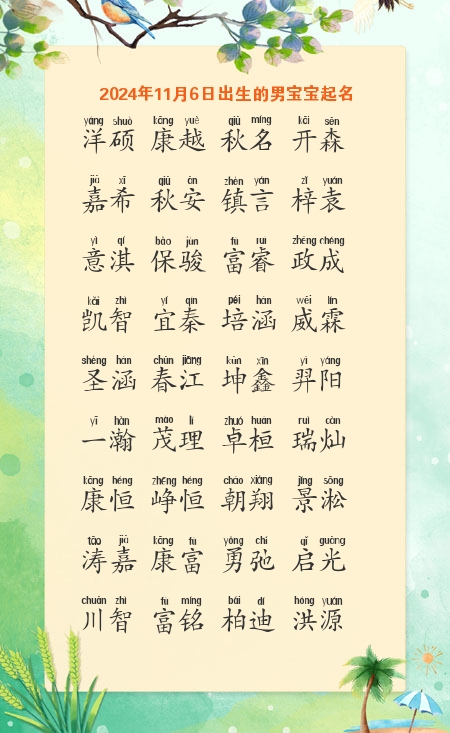 2024年11月6日出生的男宝宝起名
yáng shuò kāng yuè qiū míng kāi sēn
洋硕 康越 秋名 开森
jiā xī qiū ān zhèn yán zǐ yuán
嘉希 秋安 镇言 梓袁
yì qí bǎo jùn fù ruì zhèng chéng
意淇 保骏 富睿 政成
kǎi zhì yí qín péi hàn wēi lín
凯智 宜秦 培涵 威霖
shèng hàn chūn jiāng kūn xīn yì yáng
圣涵 春江 坤鑫 羿阳
yī hàn mào lǐ zhuó huán ruì càn
一瀚 茂理 卓桓 瑞灿
kāng héng zhēng héng cháo xiáng jǐng sōng
康恒 峥恒 朝翔 景淞
tāo jiā kāng fù yǒng chí qǐ guāng
涛嘉 康富 勇弛 启光
chuān zhì fù míng bǎi dí hóng yuán
川智 富铭 柏迪 洪源